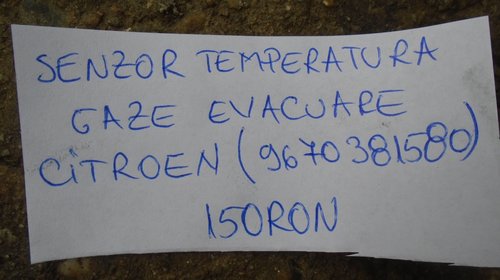 SENZOR TEMPERATURA
GAZE EVACUARE
CiTROEN (9670381580)
150RON